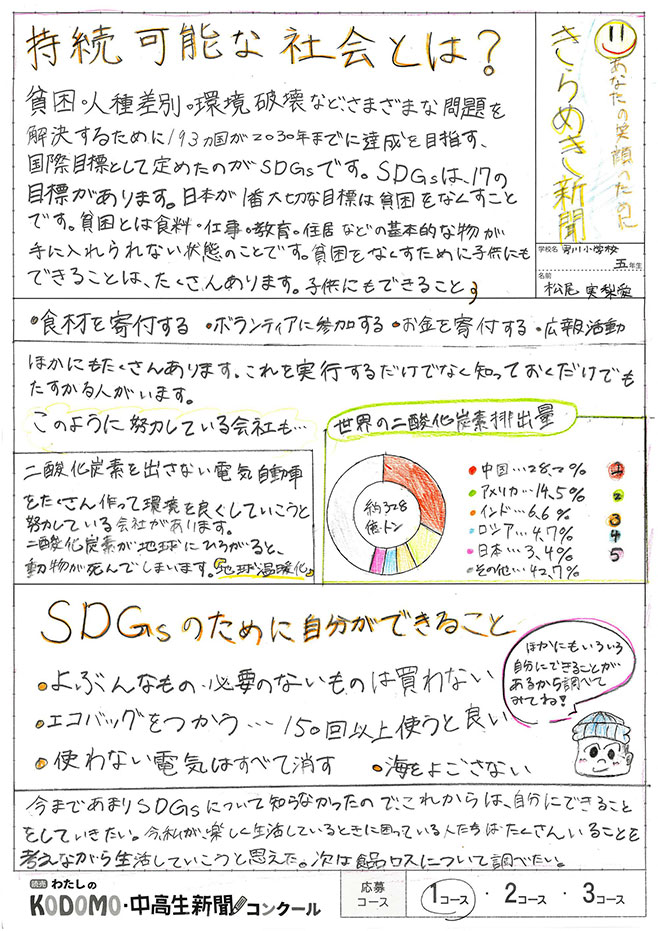 持続可能な社会とは？
あなたの笑顔のために
きらめき新聞
学校名
川小学校
五年生
名前 松尾 実梨愛
貧困・人種差別・環境破壊など、さまざまな問題を
解決するために193カ国が2030年までに達成を目指す、
国際目標として定めたのがSDGsです。SDGsは、17の
目標があります。日本が1番大切な目標は貧困をなくすこと
です。貧困とは食料・仕事・教育・住居などの基本的な物が
手に入れられない状態のことです。貧困をなくすために子供にも
できることは、たくさんあります。子供にもできること
・食材を寄付する ・ボランティアに参加する ・お金を寄付する ・広報活動
ほかにもたくさんあります。これを実行するだけでなく知っておくだけでも
たすかる人がいます。
このように努力している会社も…
二酸化炭素を出さない電気自動車
をたくさん作って環境を良くしていこうと
努力している会社があります。
二酸化炭素が地球にひろがると、
動物が死んでしまいます。「地球温暖化」
世界の二酸化炭素排出量
約328
億・トン
・中国…28.2% 1
・アメリカ…14.5% 2
・インド…6.6% 3
・ロシア…4.7% 4
・日本…3.4% 5
・その他…42.7%
SDGsのために自分ができること
・よぶんなもの・必要のないものは買わない
・エコバッグをつかう…150回以上使うと良い
・使わない電気はすべて消す ・海をよごさない
ほかにもいろいろ
自分にできることが
あるから調べて
みてね!
今まであまりSDGsについて知らなかったので、これからは、自分にできること
をしていきたい。今、私が、楽しく生活しているときに困っている人たちはたくさんいることを
考えながら生活していこうと思えた。次は食品ロスについて調べたい。
読売 わたしの
KODOMO・中高生新聞コンクール
応募
コース
1コース・2コース・3コース